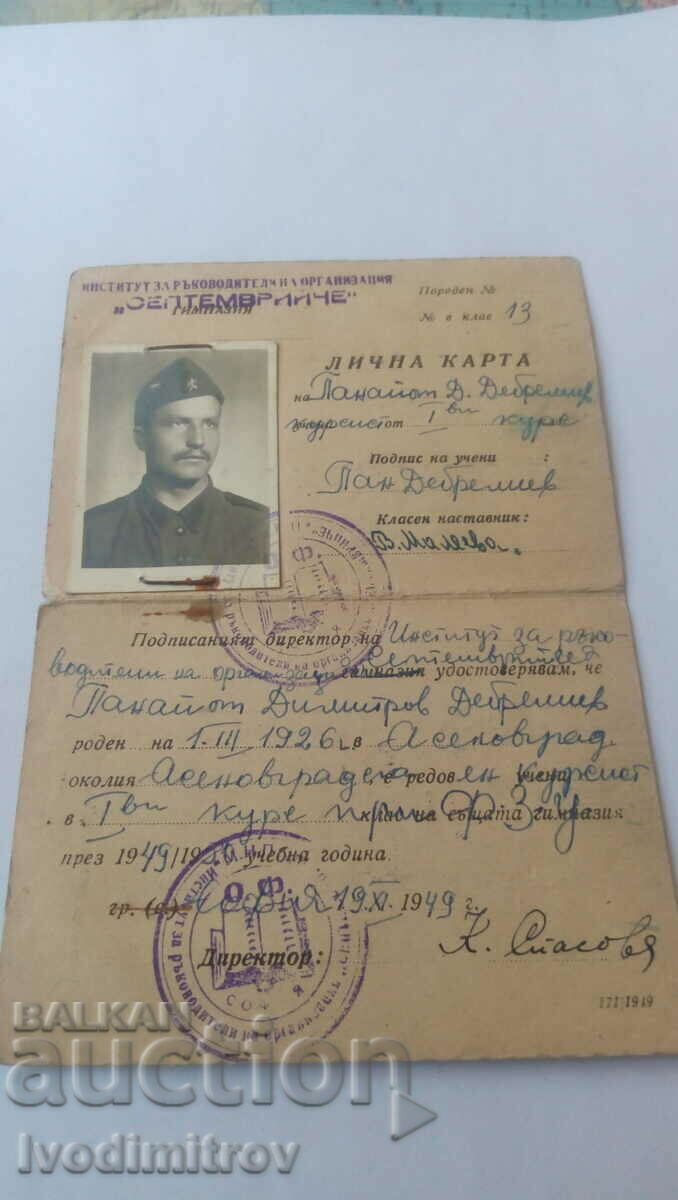 ИНСТИТУТ ЗА РЪКОВОДИТЕЛИ НА ОРГАНИЗАЦИЯ
"СЕПТЕМВРИЙЧЕ"
ГИМНАЗИЯ
Пореден №
№ в клас 13
ЛИЧНА КАРТА
на Панайот Д. Дебрелиев
курсист от I ви курс
Подпис на учени :
Пан Дебрелиев
Класен наставник:
В. Малеева
Подписаният директор на Институт за ръко-
водители на организация гимназия удостоверявам, че
Панайот Димитров Дебрелиев
роден на 1. III. 1926 г. в Асеновград
околия Асеновградска е редовен курсист
в I ви курс при класа на същата гимназия
през 1949/1950 учебна година.
гр. (с) София 19 XI 1949 г.
Директор: К. Спасова
171/1949
О.Ф.
СОФИЯ
BALKAN
auction
Ivodimitrov